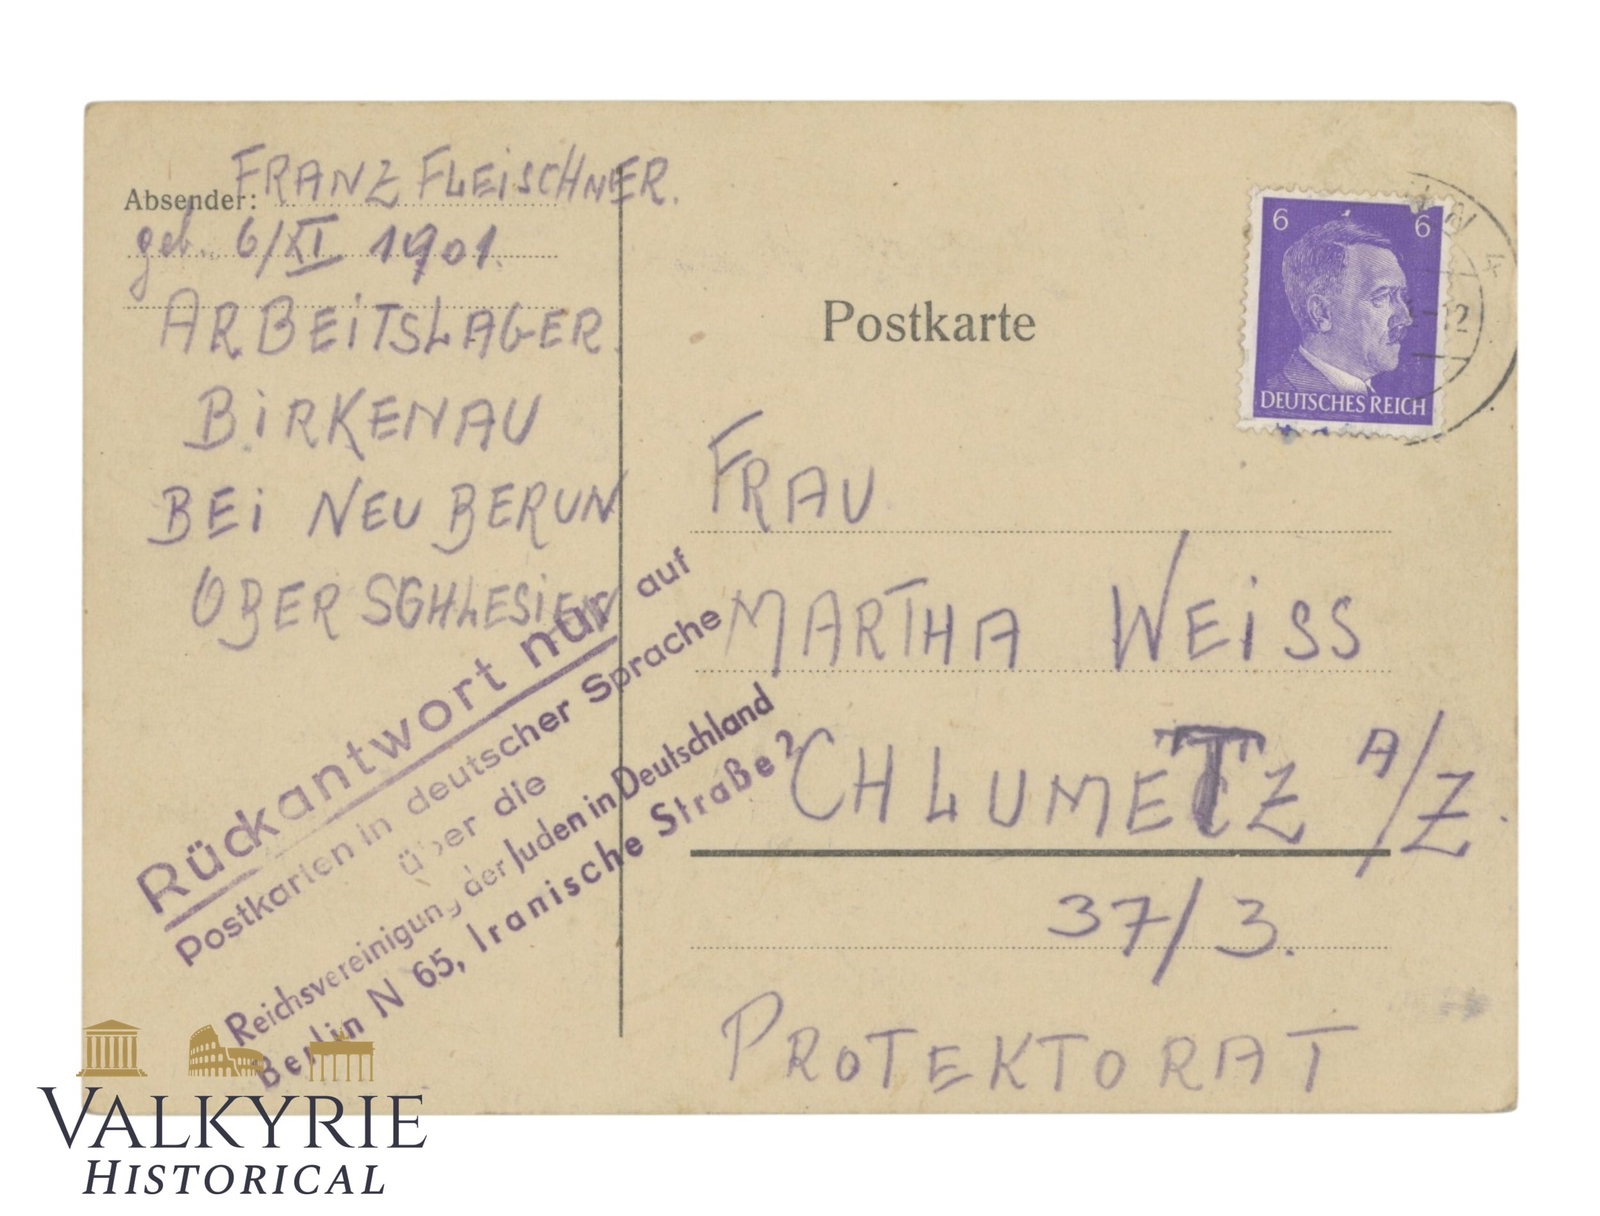 Absender: FRANZ FLEISCHNER.
geb. 6/XI 1901.
ARBEITSLAGER
BIRKENAU
BEI NEU BERUN
OBER SCHLESIEN
Rückantwort nur auf
Postkarten in deutscher Sprache
über die
Reichsvereinigung der Juden in Deutschland
Berlin N 65, Iranische Straße 2
Postkarte
6 6
DEUTSCHES REICH
12
FRAU
MARTHA WEISS
CHLUMETZ A/Z.
37/3.
PROTEKTORAT
VALKYRIE
HISTORICAL